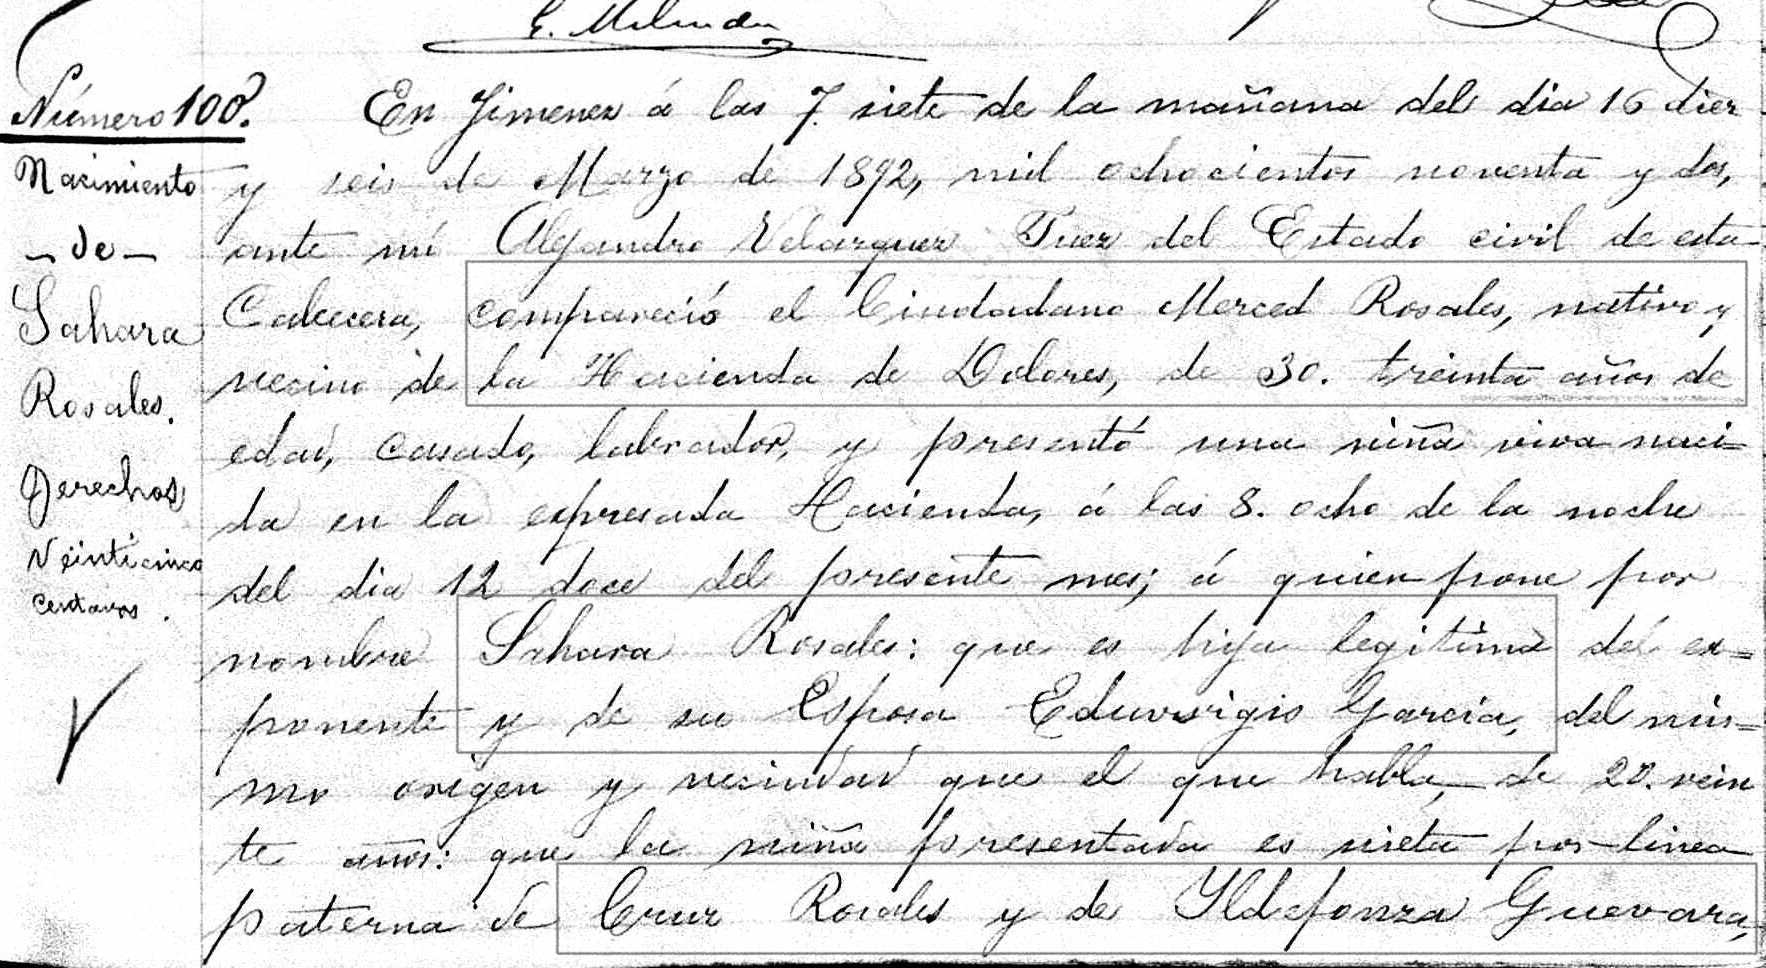 E. Melendez
Número 100.
Nacimiento
- de -
Sahara
Rosales.
Derechos
Veinticinco
centavos.
En Jimenez á las 7. siete de la mañana del dia 16 diez
y seis de Marzo de 1892, mil ochocientos noventa y dos,
ante mí Alejandro Velazquez Juez del Estado civil de esta
Cabecera, compareció el Ciudadano Merced Rosales, nativo y
vecino de la Hacienda de Dolores, de 30. treinta años de
edad, casado, labrador, y presentó una niña viva naci=
da en la expresada Hacienda, á las 8. ocho de la noche
del dia 12 doce del presente mes; á quien pone por
nombre Sahara Rosales: que es hija legitima del ex=
ponente y de su Esposa Eduvigis Garcia, del mis=
mo origen y vecindad que el que habla, de 20. vein
te años: que la niña presentada es nieta por linea
paterna de Cruz Rosales y de Yldefonza Guevara,